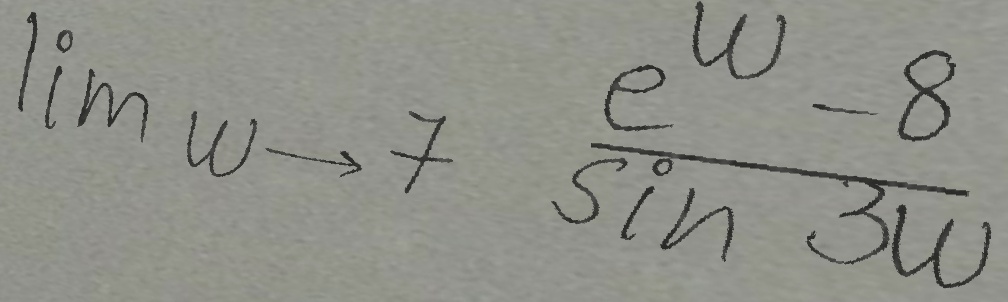 lim w→7 (e^w − 8) / (sin 3w)